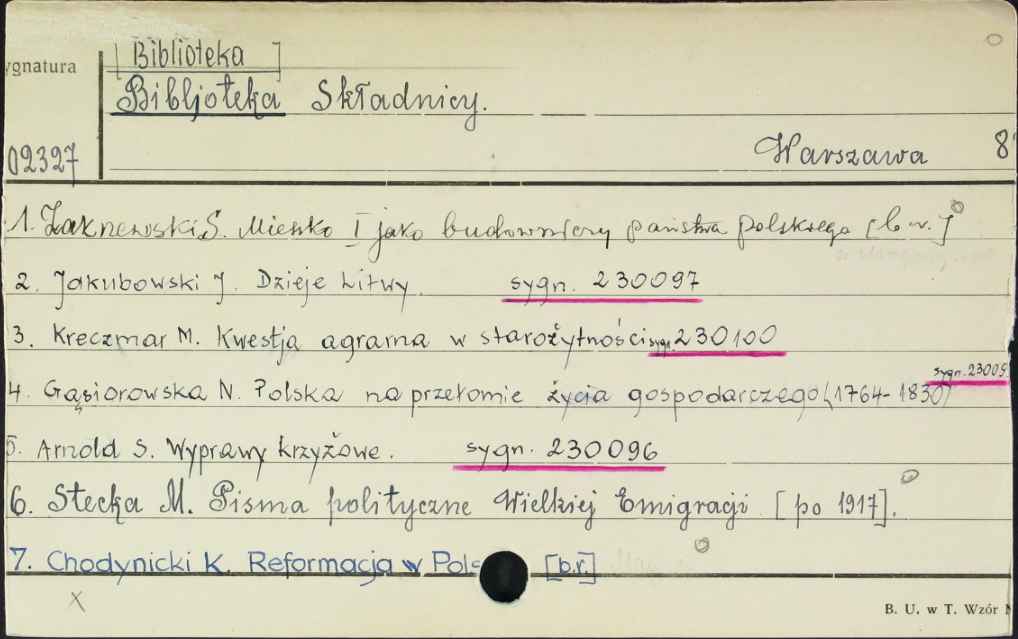 [Biblioteka]
ygnatura
Bibljoteka Składnicy.
02327
Warszawa 8°
1. Zakrzewski S. Mieszko I jako budowniczy państwa polskiego [b.r.]
2. Jakubowski J. Dzieje Litwy. sygn. 230097
3. Kreczmar M. Kwestja agrarna w starożytności sygn. 230100
sygn. 23009
4. Gąsiorowska N. Polska na przełomie życia gospodarczego (1764-1830)
5. Arnold S. Wyprawy krzyżowe. sygn. 230096
6. Stecka M. Pisma polityczne Wielkiej Emigracji [po 1917].
7. Chodynicki K. Reformacja w Pols [b.r.]
X
B. U. w T. Wzór